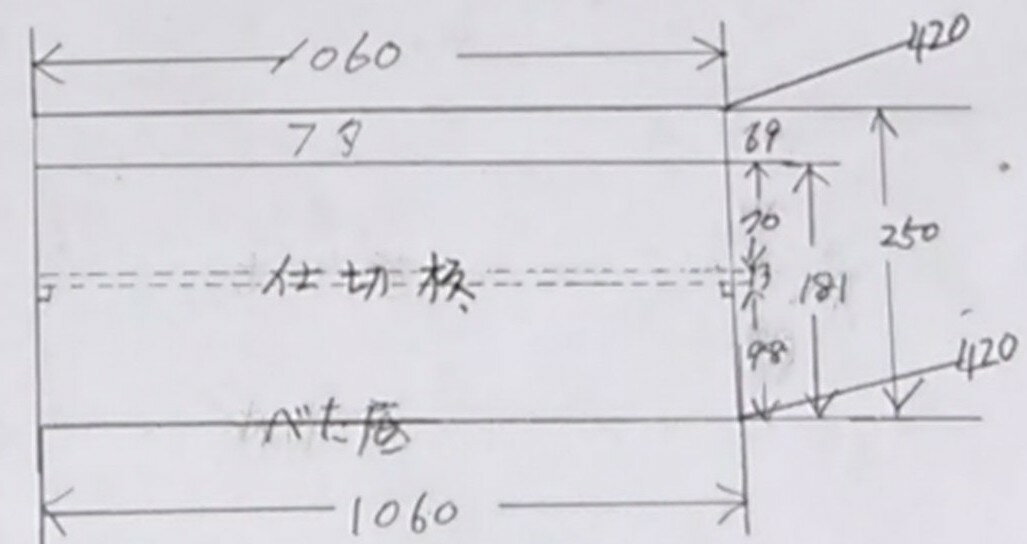 1060
420
フタ
69
70
250
仕切板
13
181
98
420
べた底
1060